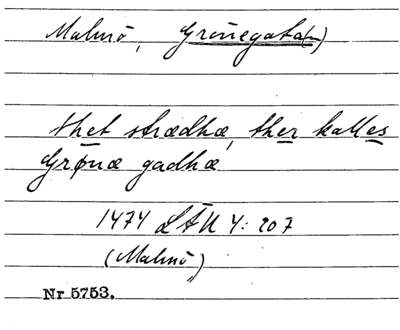 Malmö, Grönegata(n)
thet strædhæ, ther kalles
Grønæ gadhæ
1474 LÄU 4: 207
(Malmö)
Nr 5753.